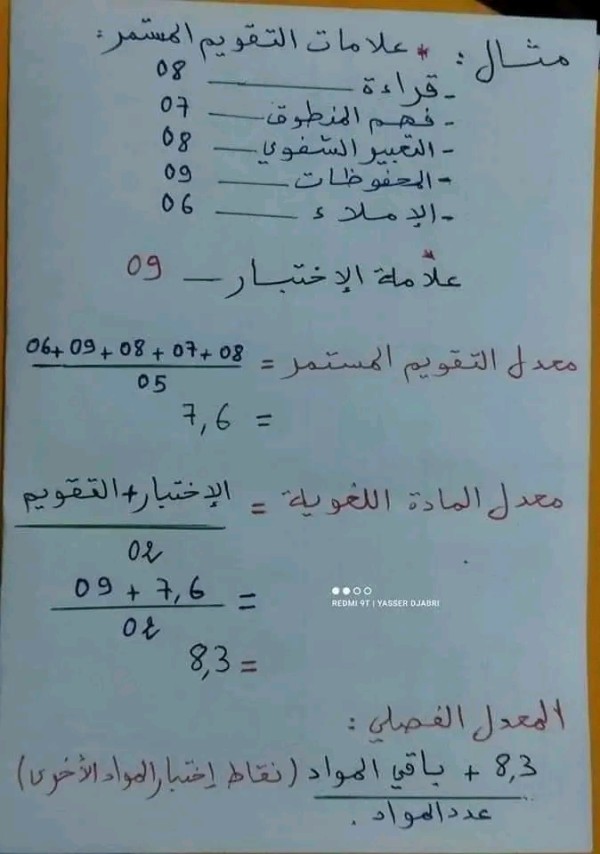 مثال : * علامات التقويم المستمر :
- قراءة ــــــ 08
- فهم المنطوق ــــــ 07
- التعبير الشفوي ــــــ 08
- المحفوظات ــــــ 09
- الإملاء ــــــ 06
* علامة الإختبار ــــــ 09
معدل التقويم المستمر = 06+09+08+07+08
05
= 7,6
معدل المادة اللغوية = الإختبار+التقويم
02
= 09 + 7,6
02
= 8,3
REDMI 9T | YASSER DJABRI
المعدل الفصلي :
8,3 + باقي المواد (نقاط إختبار المواد الأخرى)
عدد المواد .